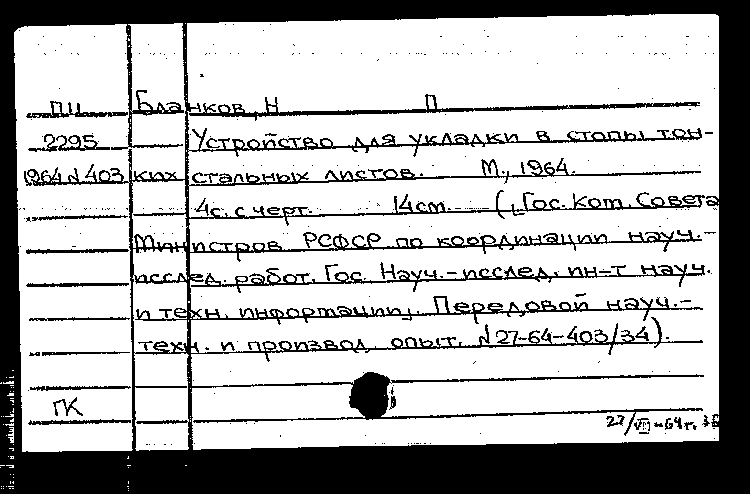 ПЦ Бланков, Н П
2295 Устройство для укладки в стопы тон-
1964 N 403 ких стальных листов. М., 1964.
4с. с черт. 14см. ([Гос. ком. Совета
Министров РСФСР по координации науч.-
исслед. работ. Гос. Науч.-исслед. ин-т науч.
и техн. информации]. Передовой науч.-
техн. и производ. опыт. N 27-64-403/34).
ГК
27/VII-64г.